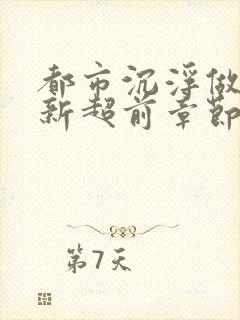 都市沉浮做
新超前章节
第7天